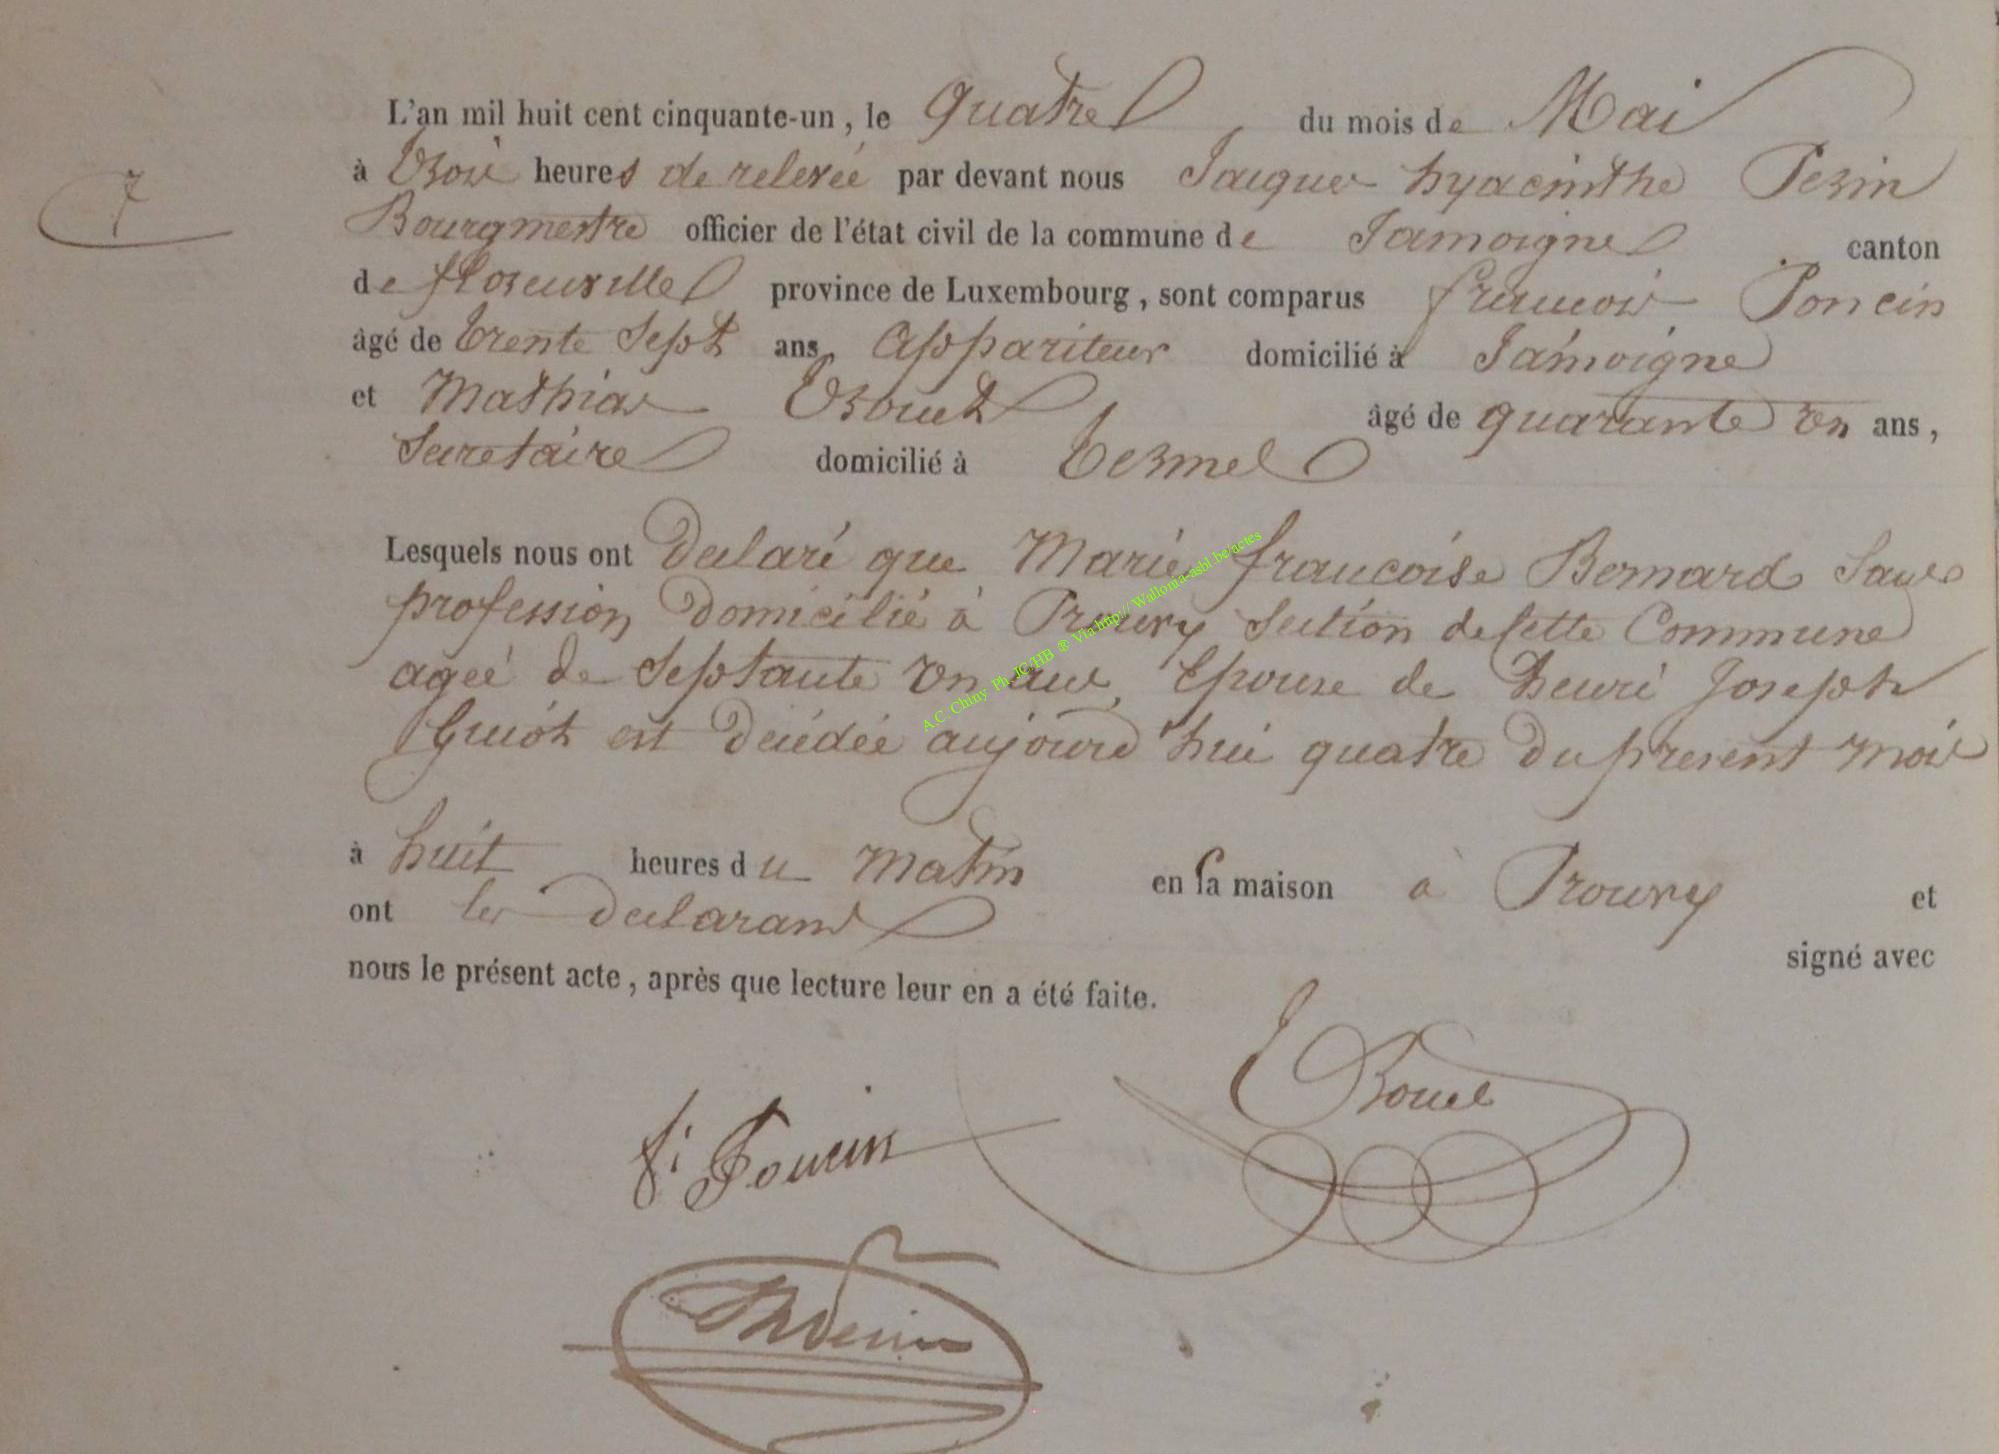 L'an mil huit cent cinquante-un, le quatre du mois de Mai
7
à trois heures de relevée par devant nous Jacques hyacinthe Perin
Bourgmestre officier de l'état civil de la commune de Jamoigne canton
de florenville province de Luxembourg, sont comparus francois Poncin
âgé de trente Sept ans, Appariteur domicilié à Jamoigne
et Mathias Trouet âgé de quarante un ans,
Secretaire domicilié à termel
Lesquels nous ont declaré que Marie francoise Bernard Sans
profession domicilié à Prouvy Section de cette Commune
ageé de Septante un ans, Epouse de henri Joseph
Guiot est decédée aujourd'hui quatre du present mois
à huit heures du matin en sa maison à Prouvy et
ont les declarans signé avec
nous le présent acte, après que lecture leur en a été faite.
Trouet
f. Poncin
JhPerin
A.C. Chiny Ph. JG/HB ® Via http:// Wallonia-asbl.be/actes